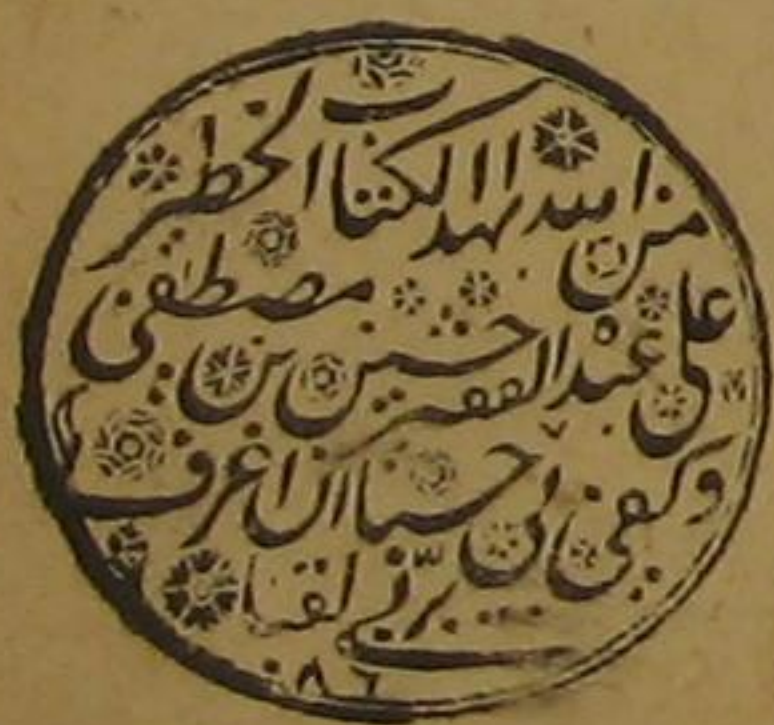 من الله بهذا الكتاب الخطير
على عبده الفقير حسين بن مصطفى
وكفى لي حسبا ان اعرف
بربي لقبا